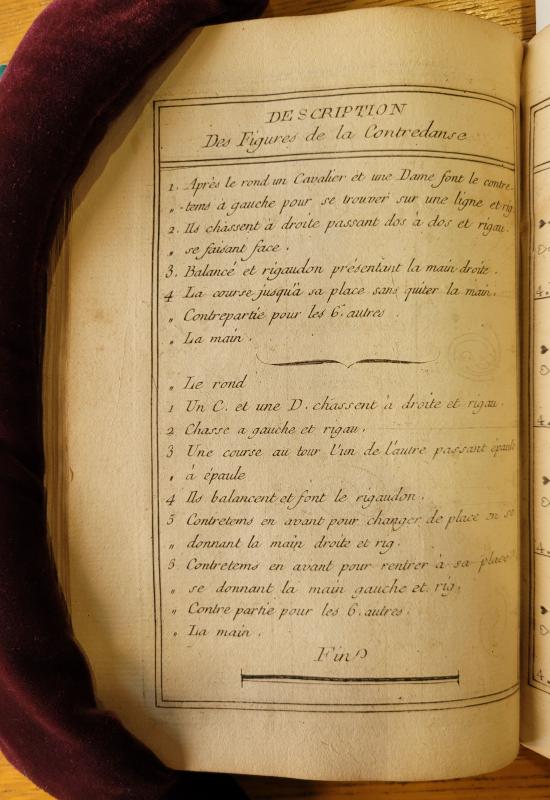 DESCRIPTION
Des Figures de la Contredanse
1. Après le rond un Cavalier et une Dame font le contre-
" -tems à gauche pour se trouver sur une ligne et rig
2. Ils chassent à droite passant dos à dos et rigau.
" se faisant face.
3. Balancé et rigaudon présentant la main droite.
4 La course jusqu'à sa place sans quiter la main.
" Contrepartie pour les 6. autres
" La main.
" Le rond
1 Un C. et une D. chassent à droite et rigau.
2 Chasse a gauche et rigau.
3 Une course au tour l'un de l'autre passant épaule
" à épaule
4 Ils balancent et font le rigaudon.
5 Contretems en avant pour changer de place en se
" donnant la main droite et rig.
6. Contretems en avant pour rentrer à sa place
" se donnant la main gauche et rig.
" Contre partie pour les 6. autres.
" La main.
Fin